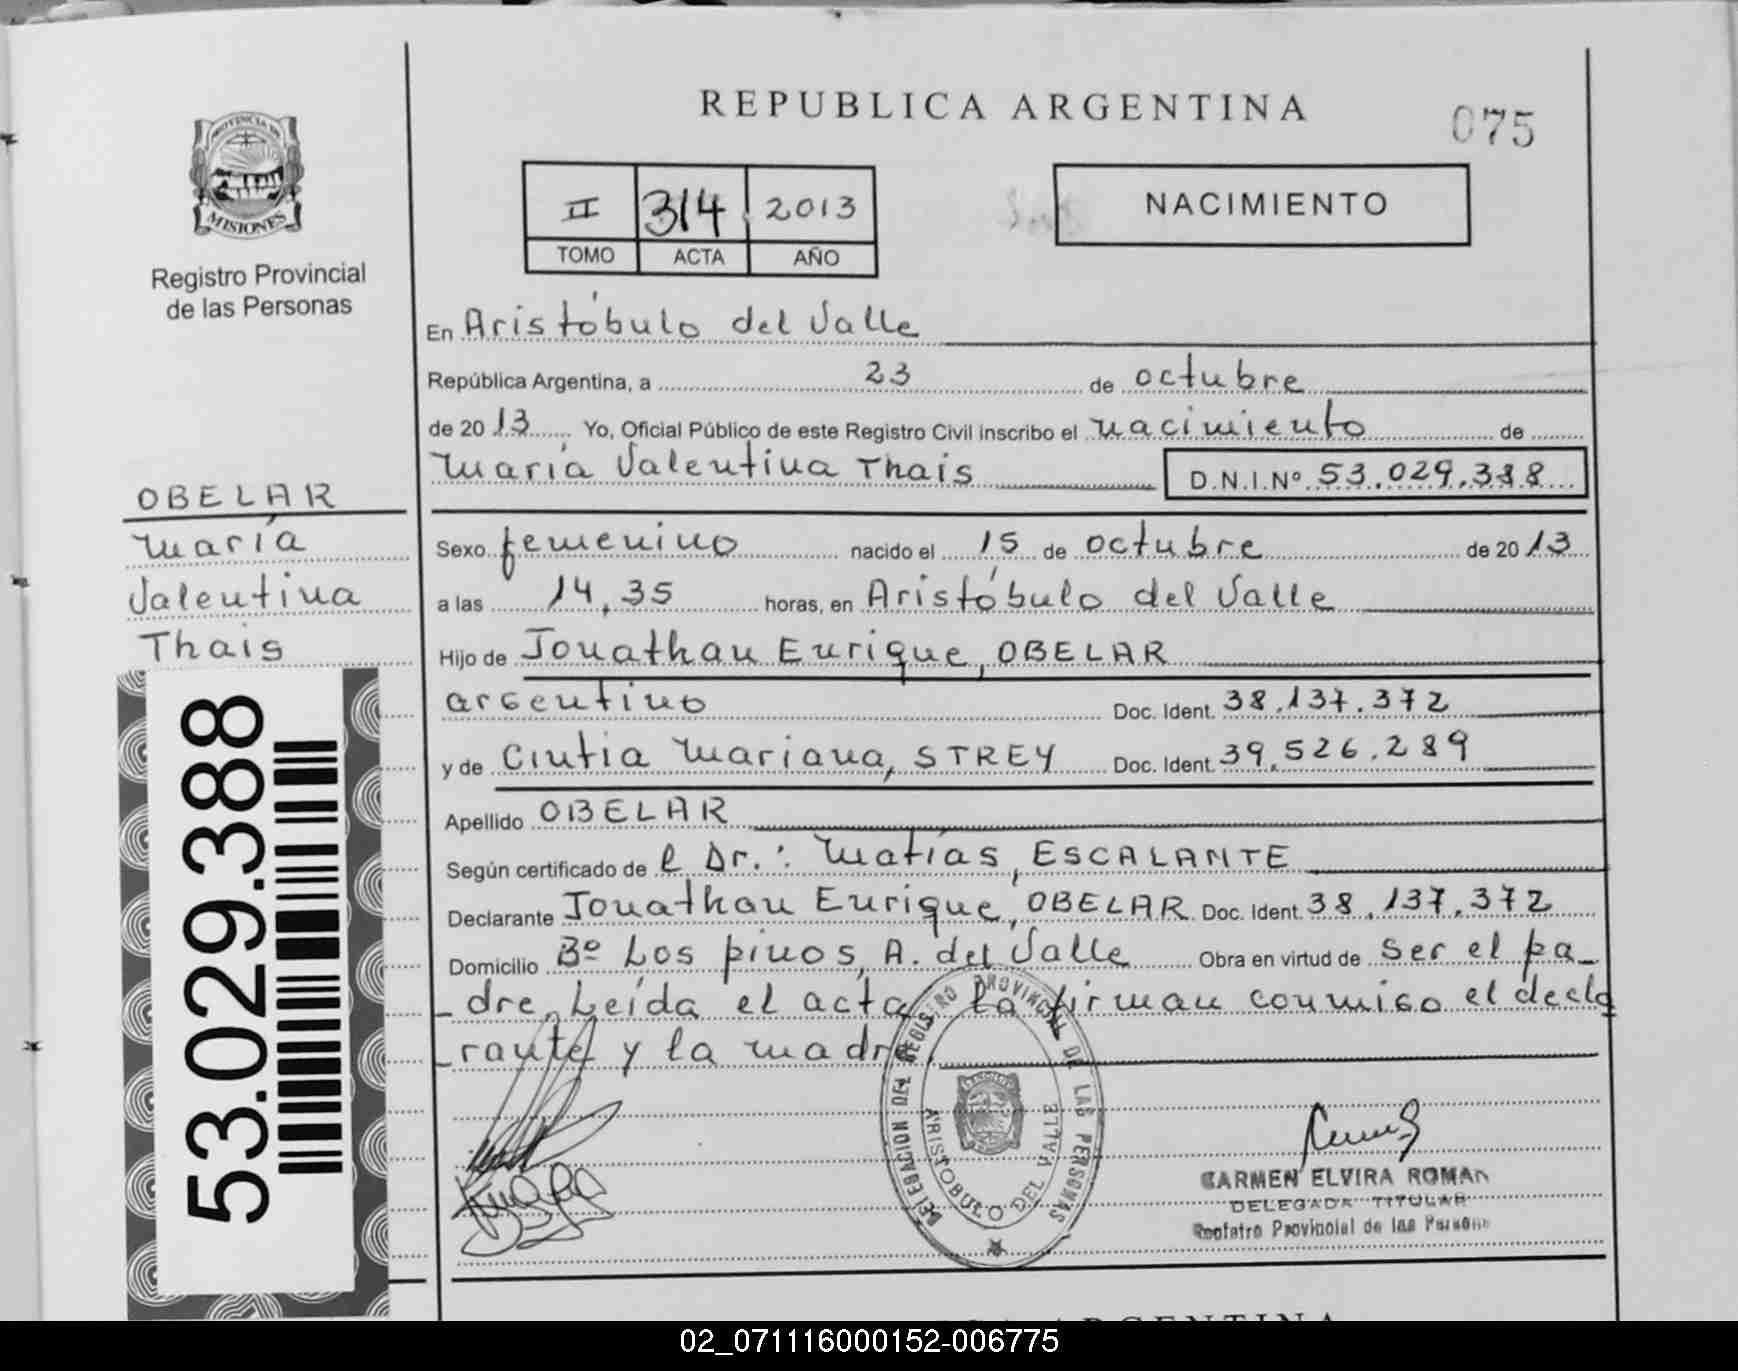 REPUBLICA ARGENTINA
075
PROVINCIA DE
MISIONES
Registro Provincial
de las Personas
II 314 2013
TOMO ACTA AÑO
NACIMIENTO
En Aristóbulo del Valle
República Argentina, a 23 de octubre
de 2013 Yo, Oficial Público de este Registro Civil inscribo el nacimiento de
María Valentina Thais D.N.I.Nº 53.029.388
OBELAR
María
Valentina
Thais
Sexo femenino nacido el 15 de octubre de 2013
a las 14,35 horas, en Aristóbulo del Valle
Hijo de Jonathan Enrique, OBELAR
argentino Doc. Ident. 38.137.372
y de Cintia Mariana, STREY Doc. Ident. 39.526.289
Apellido OBELAR
Según certificado de l Dr.: Matías, ESCALANTE
Declarante Jonathan Enrique, OBELAR Doc. Ident. 38.137.372
Domicilio Bº Los pinos, A. del Valle Obra en virtud de ser el pa_
_dre. Leída el acta la firman conmigo el decla
_rante y la madre.
53.029.388
DELEGACION DEL REGISTRO PROVINCIAL DE LAS PERSONAS
ARISTOBULO DEL VALLE
CARMEN ELVIRA ROMAN
DELEGADA TITULAR
Registro Provincial de las Personas
ARGENTINA
02_071116000152-006775